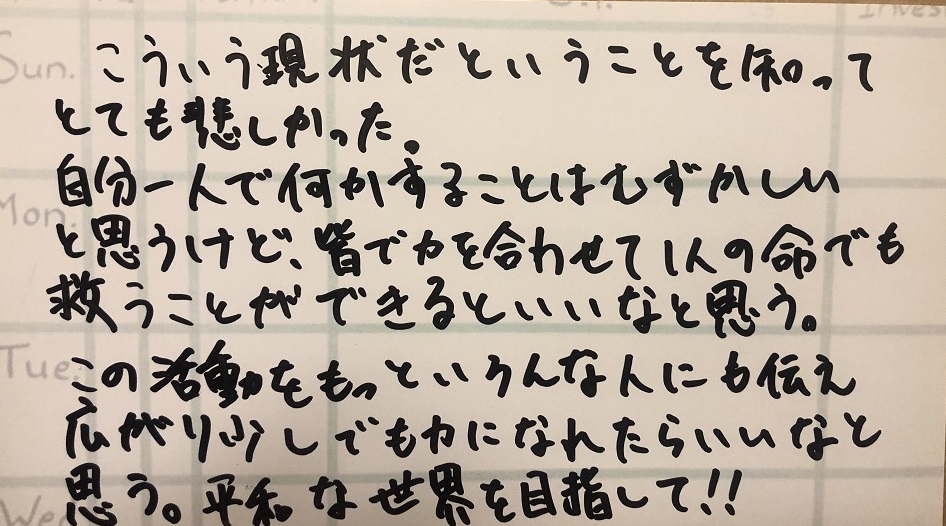 Sun.
こういう現状だということを知って
とても悲しかった。
自分一人で何かすることはむずかしい
Mon.
と思うけど、皆で力を合わせて1人の命でも
救うことができるといいなと思う。
Tue.
この活動をもっといろんな人にも伝え
広がり少しでも力になれたらいいなと
Wed
思う。平和な世界を目指して!!